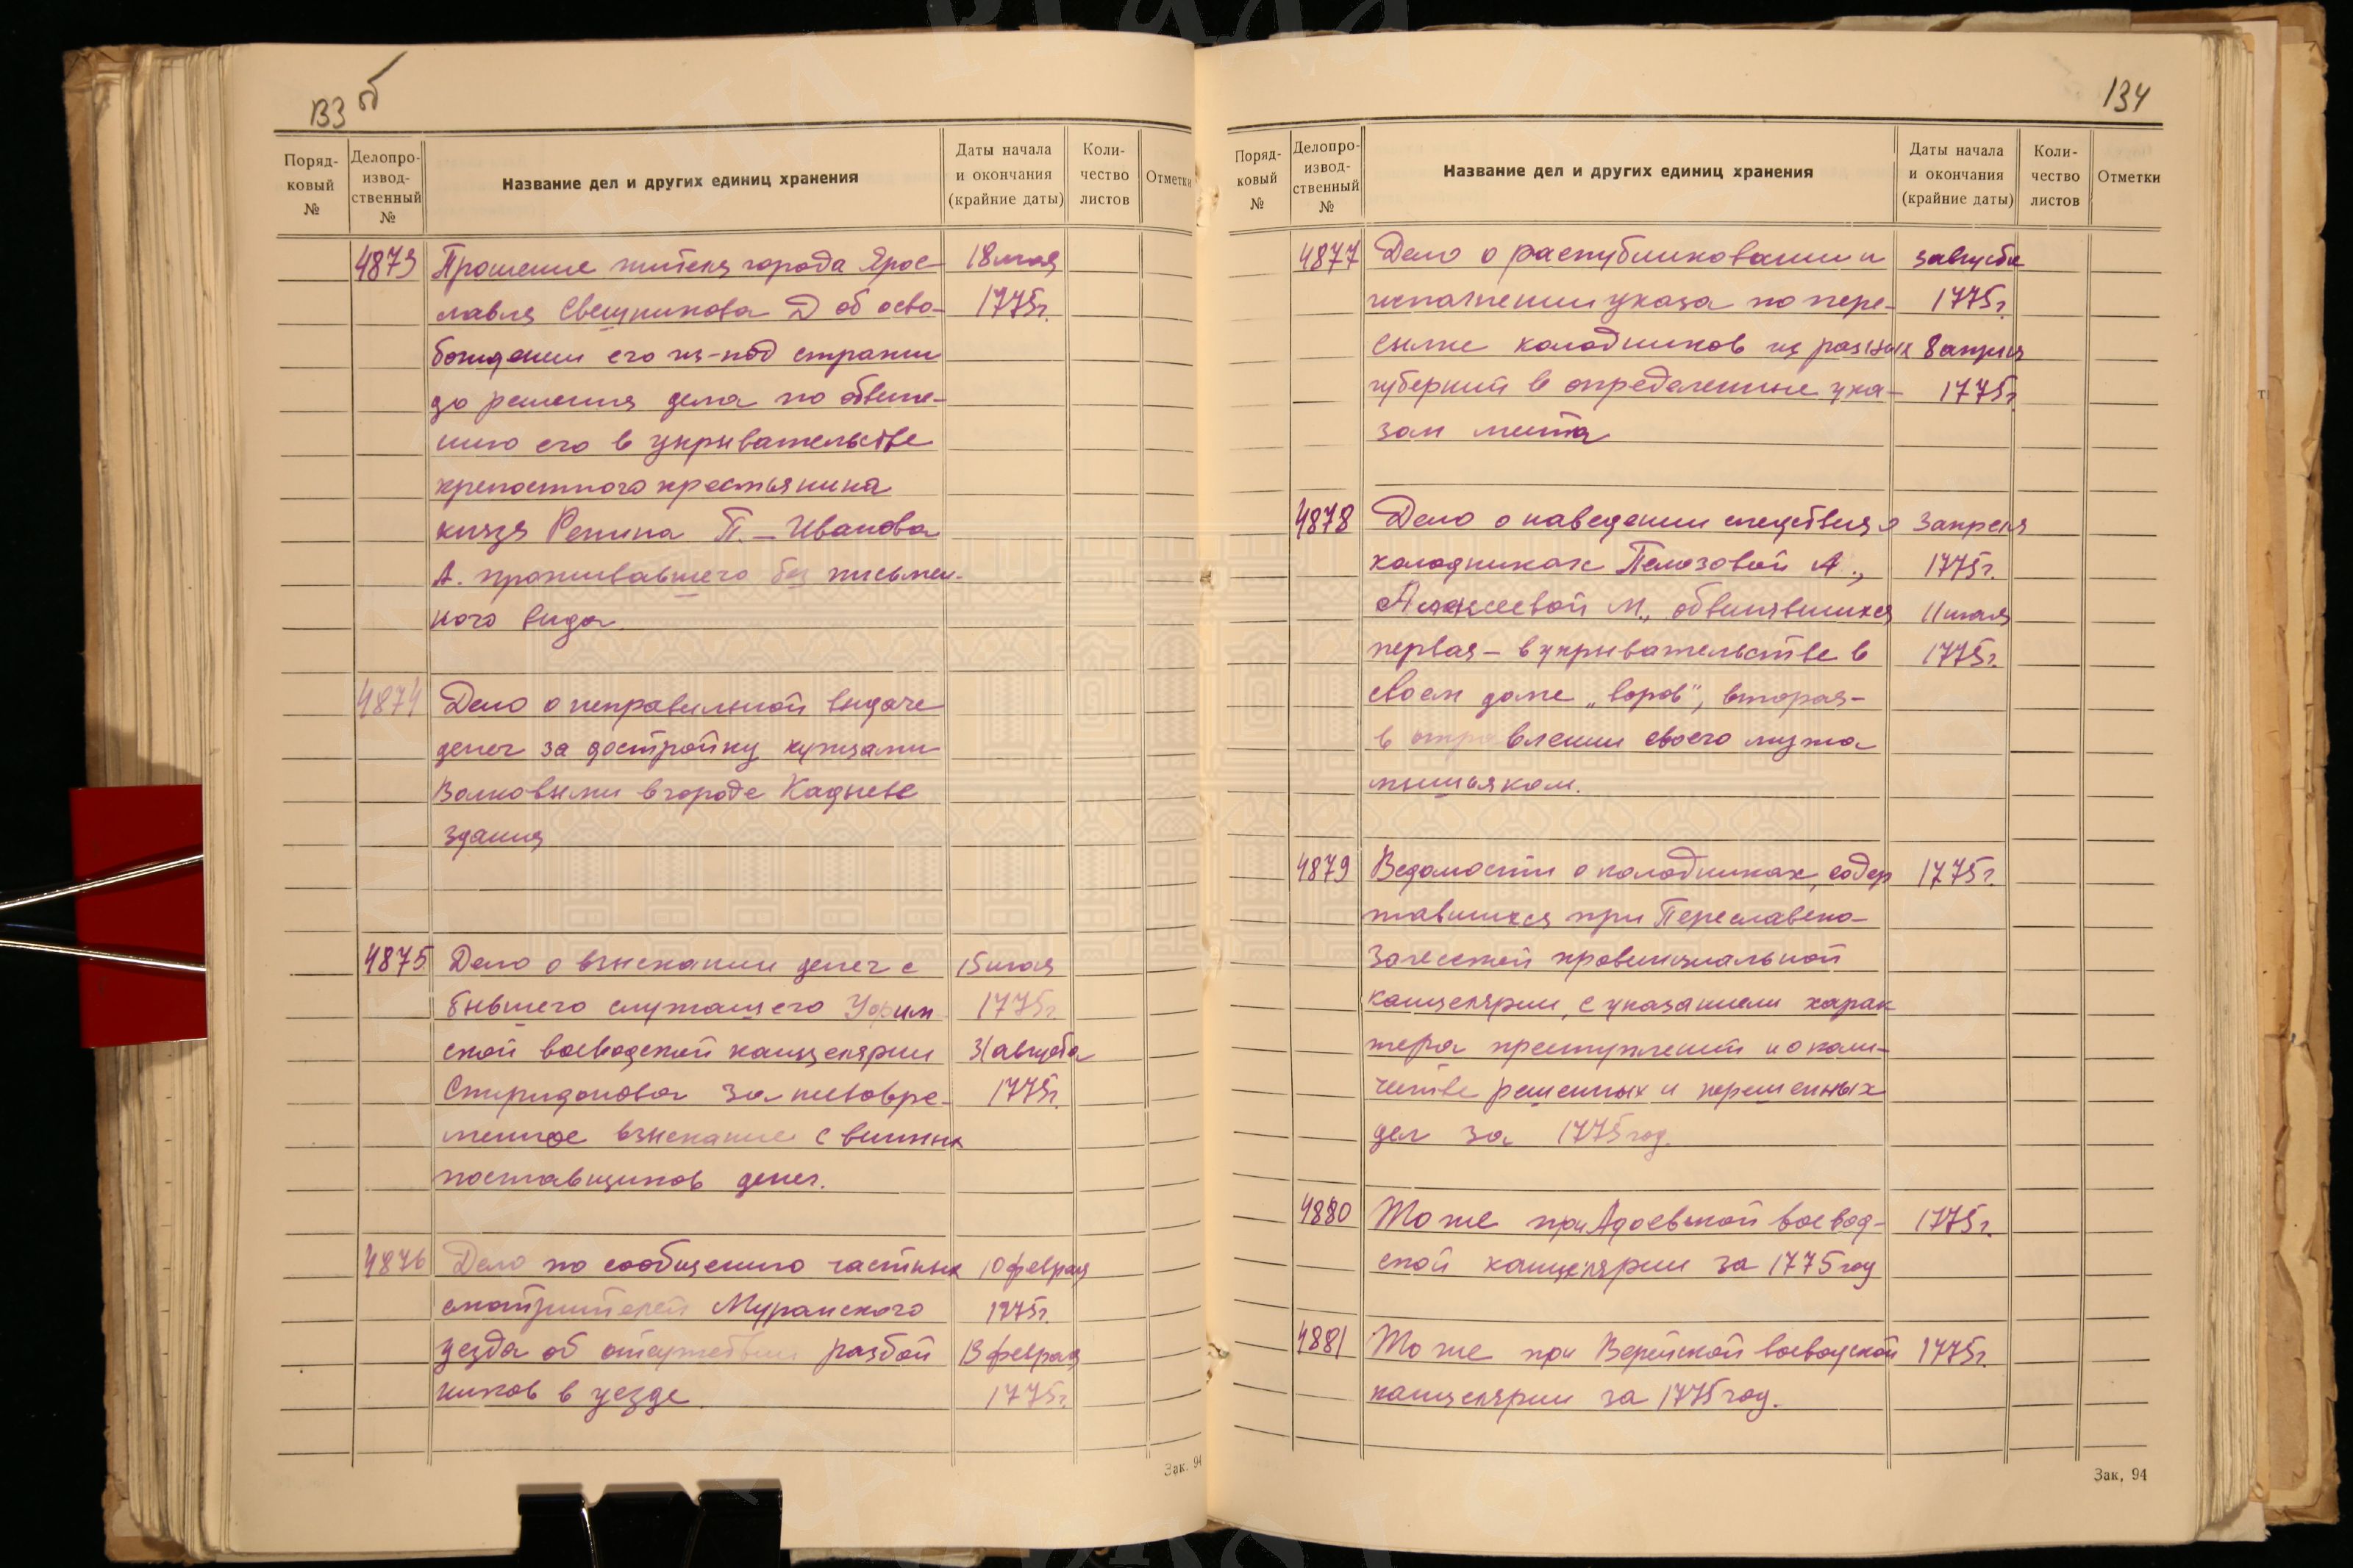 133 об
Поряд-
ковый
№
Делопро-
извод-
ственный
№
Название дел и других единиц хранения
Даты начала
и окончания
(крайние даты)
Коли-
чество
листов
Отметки
4873 Прошение жителя города Ярос- 18 мая
лавля Свешникова Д об осво- 1775г.
бождении его из-под стражи
до решения дела по обвине-
нию его в укрывательстве
крепостного крестьянина
князя Репнина П. – Иванова
А. проживавшего без письмен-
ного вида.
4874 Дело о неправильной выдаче
денег за достройку купцами
Волковыми в городе Кадыеве
здания
4875 Дело о взыскании денег с 15 мая
бывшего служащего 1775г.
ской воеводской канцелярии 31 августа
Спиридонова за несовре- 1775г.
менное взыскание с винных
поставщиков денег.
4876 Дело по сообщению частных 10 февраля
смотрителей Муромского 1775г.
уезда об разбой 13 февраля
ников в уезде. 1775г.
Зак. 94
134
Поряд-
ковый
№
Делопро-
извод-
ственный
№
Название дел и других единиц хранения
Даты начала
и окончания
(крайние даты)
Коли-
чество
листов
Отметки
4877 Дело о распубликовании и 3 августа
исполнении указа по пере- 1775г.
сылке колодников из разных 8 апреля
губерний в определенные ука- 1775г.
зом места
4878 Дело о наведении следствия о 3 апреля
колодниках А., 1775г.
Алексеевой М., обвинявшихся 11 мая
первая – в укрывательстве в 1775г.
своем доме „воров", вторая –
в отравлении своего мужа
мышьяком.
4879 Ведомости о колодниках, содер 1775г.
жавшихся при Переславско-
Залесской провинциальной
канцелярии, с указанием харак
тера преступлений и о коли-
честве решенных и нерешенных
дел за 1775 год.
4880 То же при Адоевской воевод- 1775г.
ской канцелярии за 1775 год
4881 То же при Верейской воеводской 1775г.
канцелярии за 1775 год.
Зак. 94